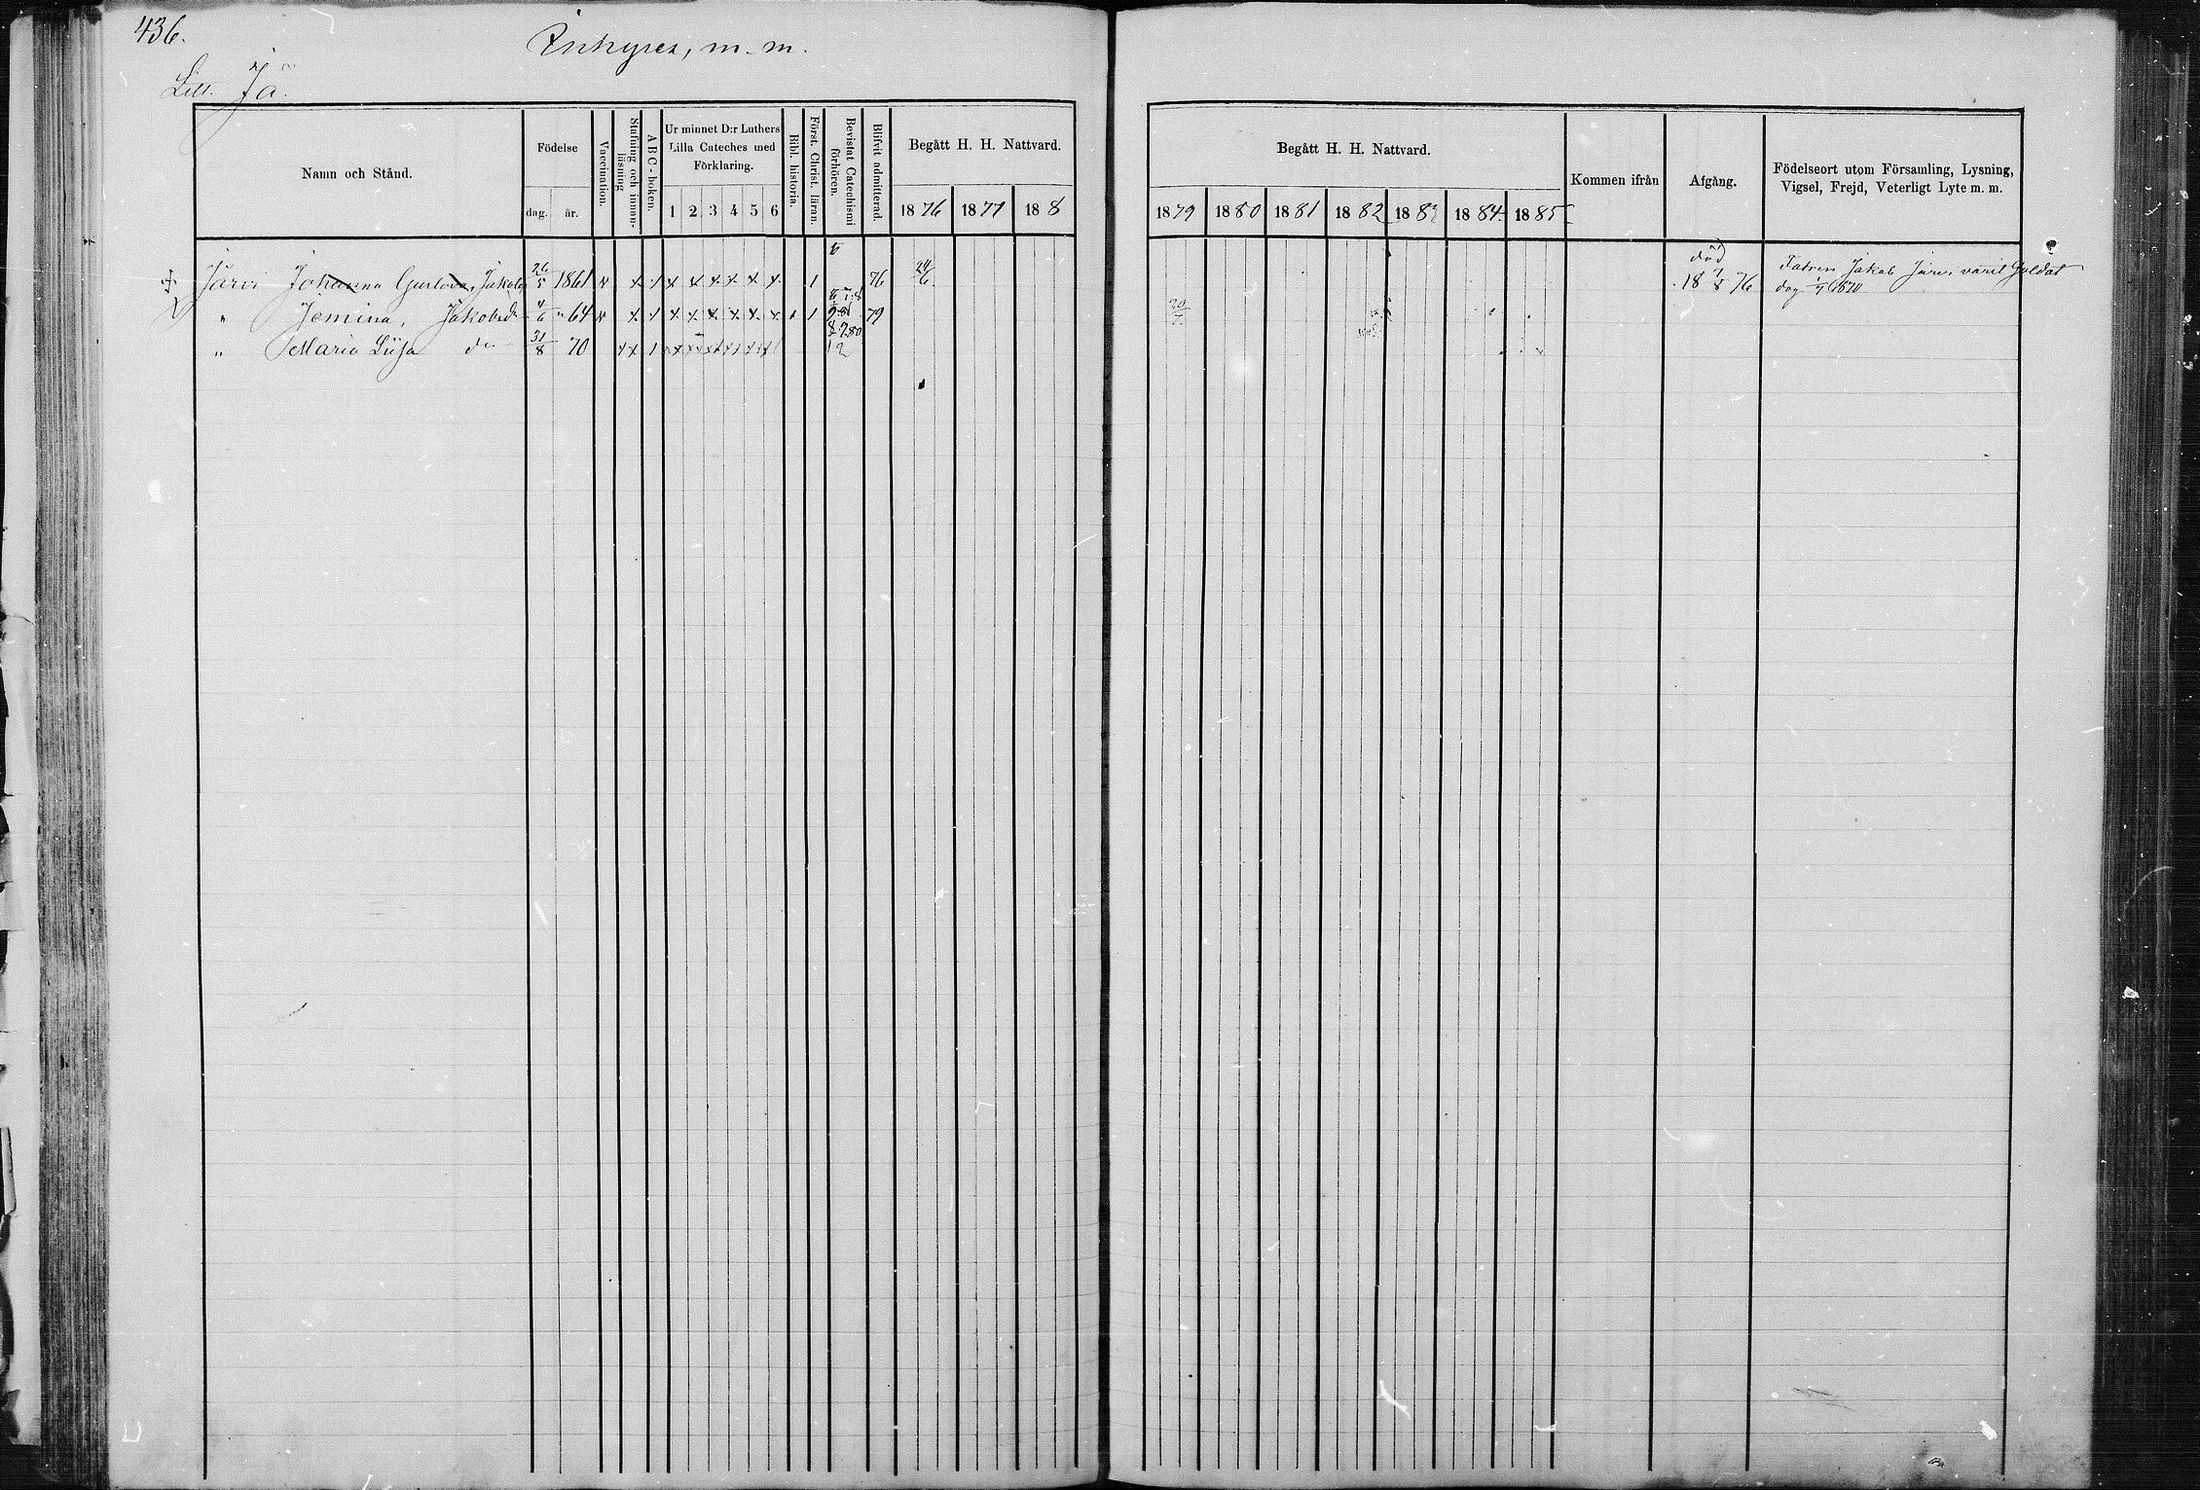 436.
Inhyses, m. m.
Litt. Jä.
Namn och Stånd.
Födelse
dag. år.
Vaccination.
Stafning och innan-
läsning
ABC-boken.
Ur minnet D:r Luthers
Lilla Cateches med
Förklaring.
1 2 3 4 5 6
Bibl. historia.
Först. Christ. läran.
Bevistat Catechismi
förhören.
Blifvit admitterad
Begått H. H. Nattvard.
1876 1877 188
Begått H. H. Nattvard.
1879 1880 1881 1882 1883 1884 1885
Kommen ifrån
Afgång.
Födelseort utom Församling, Lysning,
Vigsel, Frejd, Veterligt Lyte m. m.
Järvi Johanna Gustava, Jakobs 26/5 1861 1 76 24/6 död 18 76 Fadren Jakob Järvi varit Soldat
dog 1870
" Jemina, Jakobsdr 4/6 " 64 1 79 20/7
" Maria Liisa do 31/8 70